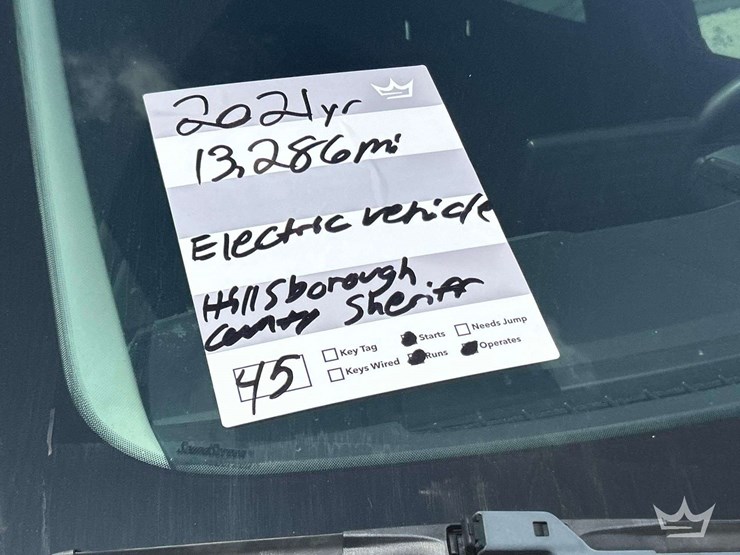 2021 yr
13,286 mi
Electric vehicle
Hillsborough
County Sheriff
45
Key Tag Starts Needs Jump
Keys Wired Runs Operates